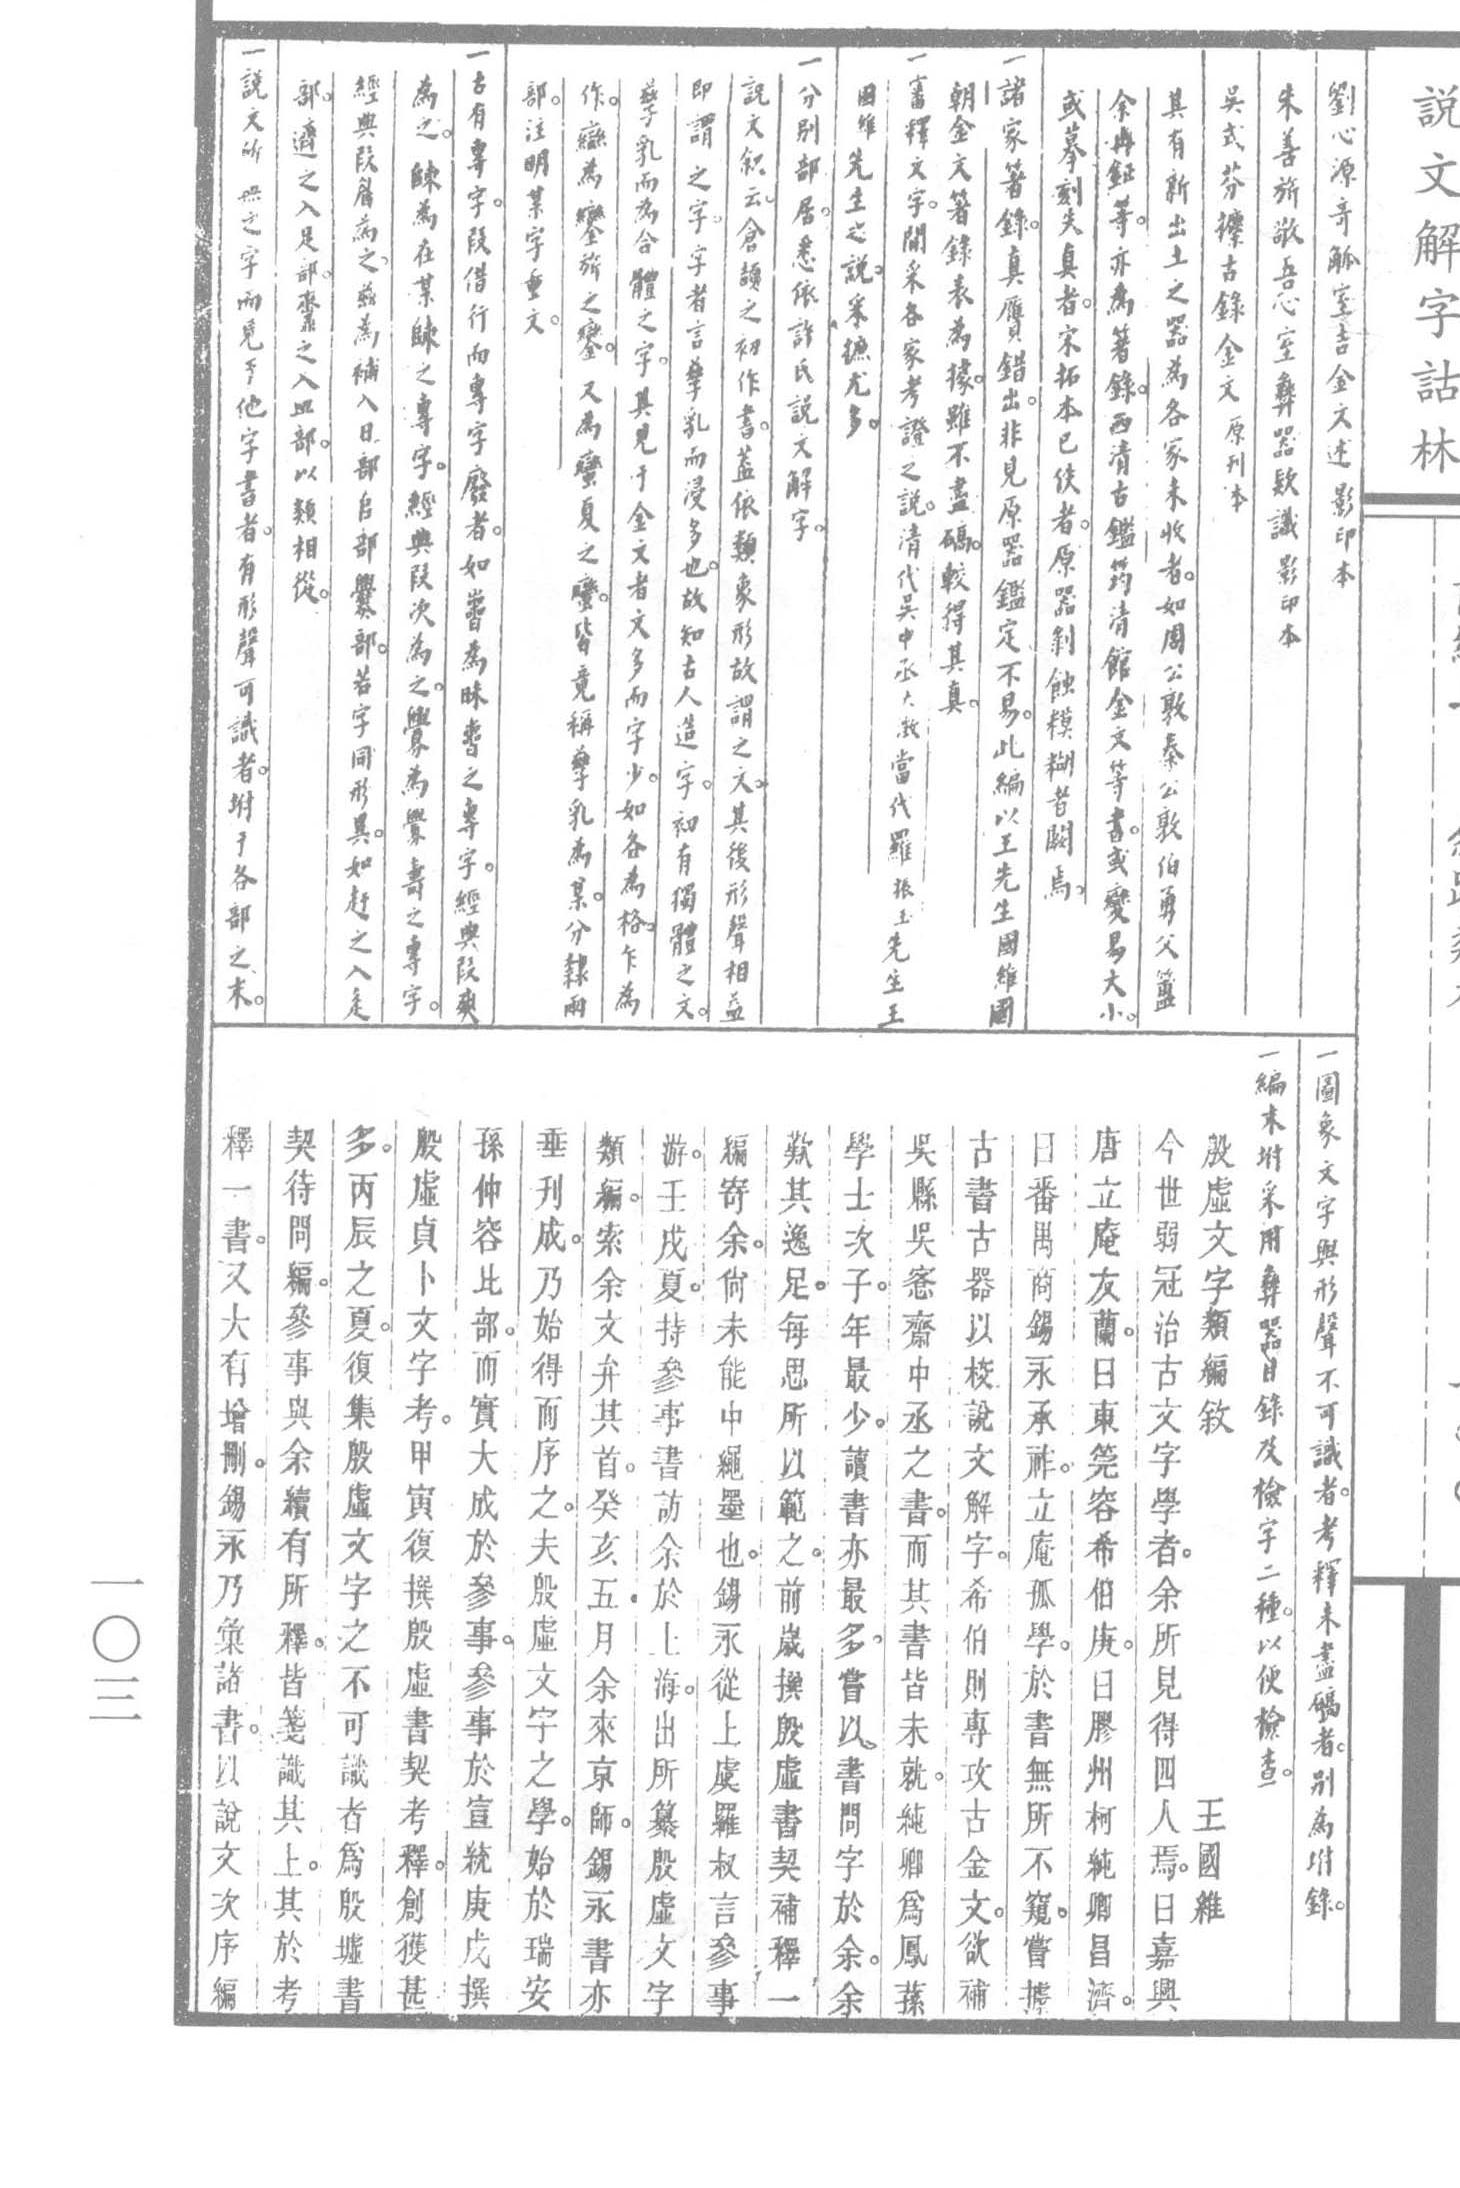 說文解字詁林
劉心源奇觚室吉金文述 影印本
朱善旂敬吾心室彝器款識 影印本
吳式芬攈古錄金文 原刊本
其有新出土之器為各家未收者。如周公敦秦公敦伯勇父簠
余冉鉦等。亦為著錄。西清古鑑筠清館金文等書。或變易大小。
或摹刻失真者。宋拓本已佚者。原器剝蝕模糊者闕焉。
一諸家箸錄。真贗錯出。非見原器鑑定不易。此編以王先生國維國
朝金文箸錄表為據。雖不盡礄。較得其真。
一審釋文字。間采各家考證之說。清代吳中丞大澂當代羅振玉先生王
國維先生之說。采摭尤多。
一分別部居。悉依許氏說文解字。
說文敘云。倉頡之初作書。蓋依類象形故謂之文。其後形聲相益
即謂之字。字者言孳乳而浸多也。故知古人造字。初有獨體之文。
孳乳而為合體之字。其見于金文者文多而字少。如各為格。乍為
作。䜌為鑾旂之鑾。又為蠻夏之蠻。皆竟稱孳乳為某。分隸兩
部。注明某字重文。
一古有專字。叚借行而專字廢者。如𣉙為昧爽之專字。經典叚爽
為之。𩛥為在某𩛥之專字。經典叚次為之。釁為釁壽之專字。
經典叚眉為之。茲為補入日部𠂤部爨部。若字同形異。如赶之入辵
部。適之入足部。齍之入皿部。以類相從。
一說文所無之字而見于他字書者。有形聲可識者。坿于各部之末。
一圖象文字與形聲不可識者。考釋未盡礄者。別為坿錄。
一編末坿采用彝器目錄及檢字二種。以便檢查。
殷虛文字類編敘 王國維
今世弱冠治古文字學者。余所見得四人焉。曰嘉興
唐立庵友蘭。曰東筦容希伯庚。曰膠州柯純卿昌濟。
曰番禺商錫永承祚。立庵孤學。於書無所不窺。嘗據
古書古器以校說文解字。希伯則專攻古金文。欲補
吳縣吳愙齋中丞之書。而其書皆未就。純卿爲鳳蓀
學士次子。年最少。讀書亦最多。嘗以書問字於余。余
歎其逸足。每思所以範之。前歲撰殷虛書契補釋一
編寄余。尙未能中繩墨也。錫永從上虞羅叔言參事
游。壬戌夏。持參事書訪余於上海。出所纂殷虛文字
類編。索余文弁其首。癸亥五月余來京師。錫永書亦
垂刊成。乃始得而序之。夫殷虛文字之學。始於瑞安
孫仲容比部。而實大成於參事。參事於宣統庚戌撰
殷虛貞卜文字考。甲寅復撰殷虛書契考釋。創獲甚
多。丙辰之夏。復集殷虛文字之不可識者爲殷墟書
契待問編。參事與余續有所釋。皆箋識其上。其於考
釋一書。又大有增刪。錫永乃彙諸書。以說文次序編
一〇三